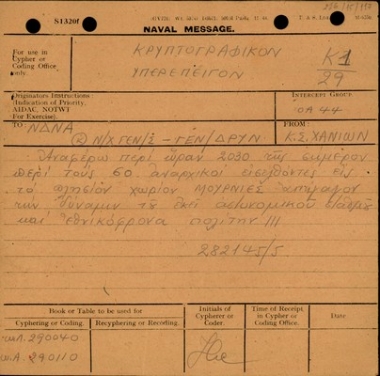 S1320f
NAVAL MESSAGE.
For use in
Cypher or
Coding Office
only
ΚΡΥΠΤΟΓΡΑΦΙΚΟΝ
ΥΠΕΡΕΠΕΙΓΟΝ
Κ1
29
Originators Instructions
(Indication of Priority,
AIDAC, NOTWT
For Exercise).
INTERCEPT GROUP
ΟΑ 44
TO
ΝΔΝΑ
FROM
(2) Ν/Χ ΓΕΝ/Σ - ΓΕΝ/ΔΡΥΝ
Κ.Σ. ΧΑΝΙΩΝ
Αναφέρω περί ώραν 2030 της σήμερον
περί τους 60 αναρχικοί εισελθόντες εις
το πλησίον χωρίον ΜΟΥΡΝΙΕΣ
την δύναμιν του εκεί αστυνομικού
και εθνικόφρονα πολίτην !!!
282145/5
Book or Table to be used for
Cyphering or Coding.
Recyphering or Recoding.
Initials of
Cypherer or
Coder.
Time of Receipt
in Cypher or
Coding Office
Date.
290040
290110